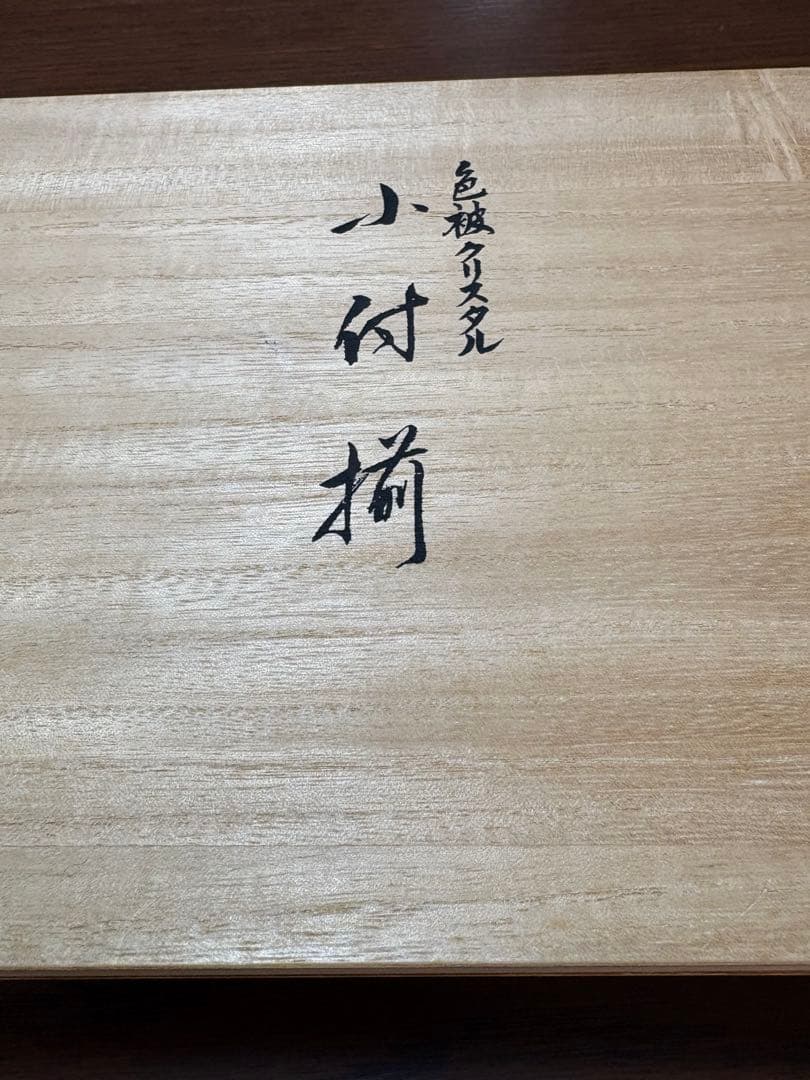 色被クリスタル
小付揃